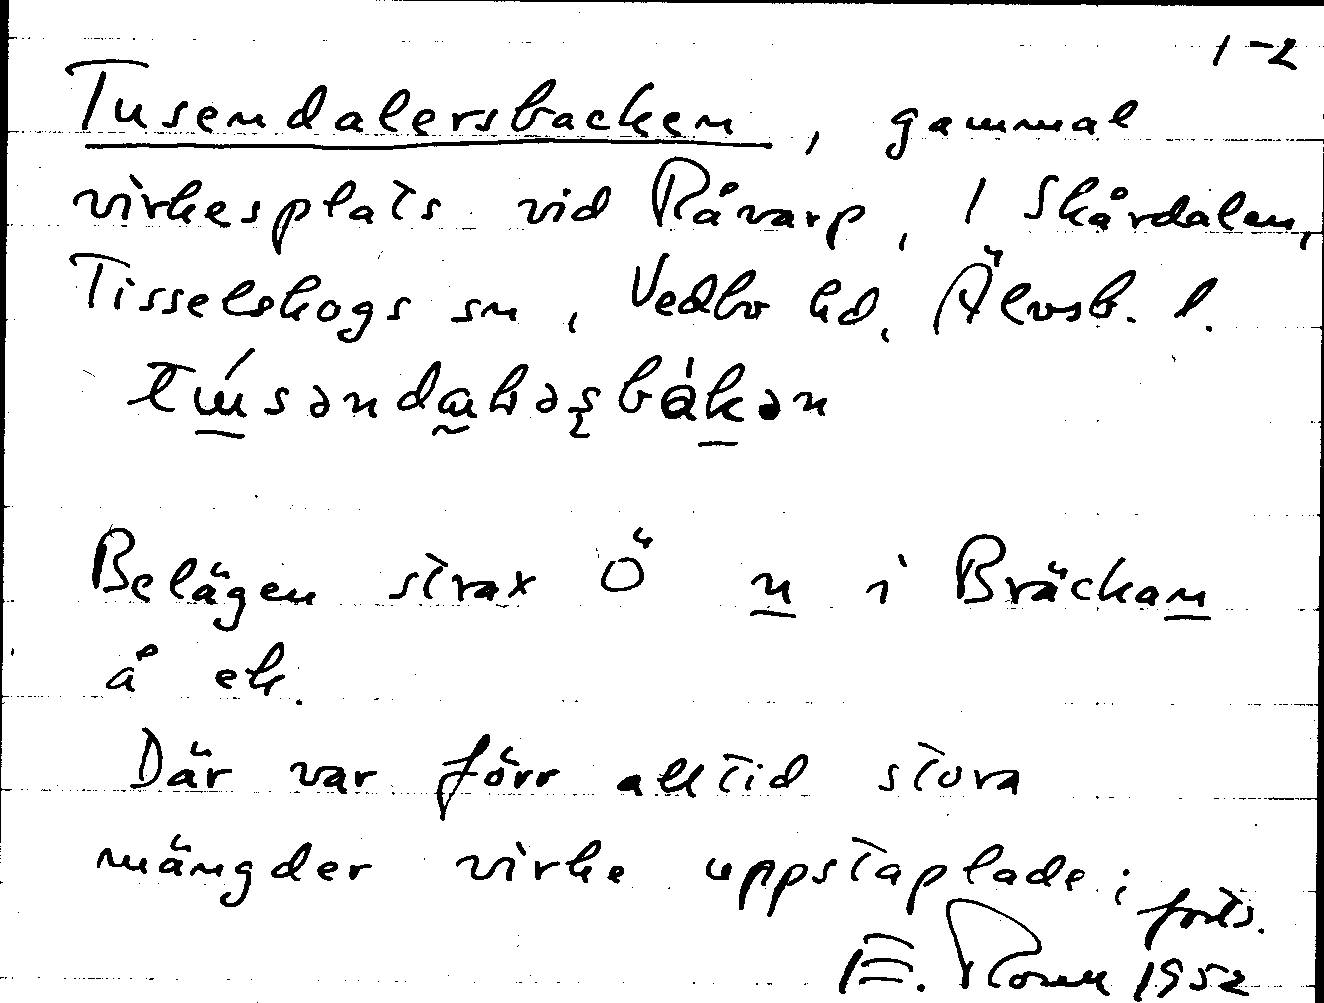 1-2
Tusendalersbacken, gammal
virkesplats vid Råvarp, 1 Skårdalen,
Tisselskogs sn, Vedbo hd, Älvsb. l.
Belägen strax Ö n i Bräckan
å ek.
Där var förr alltid stora
mängder virke uppstaplade; forts.
E. 1952